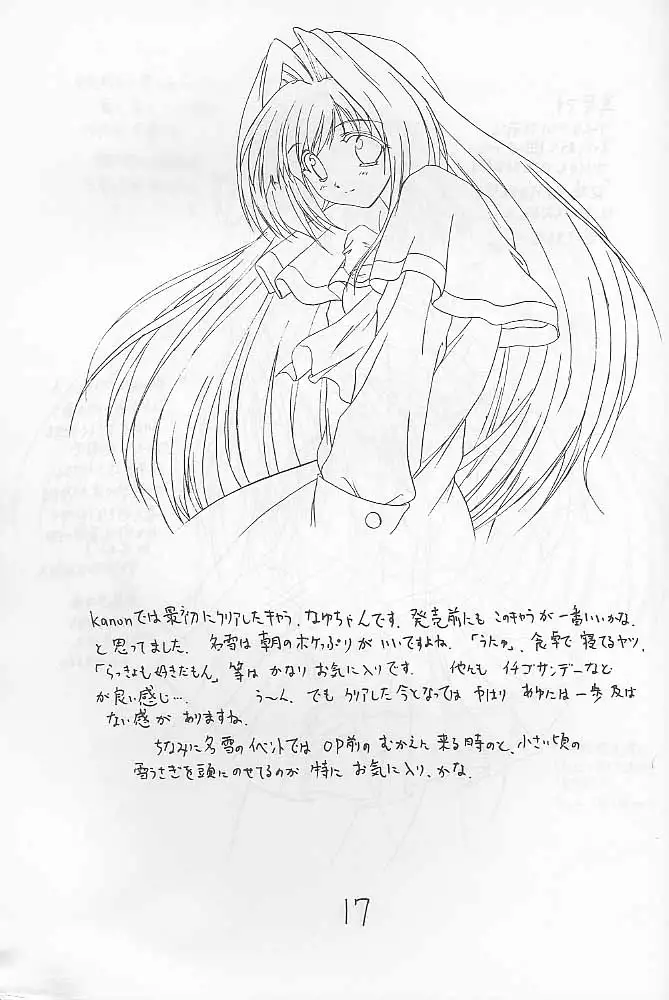 kanonでは最初にクリアしたキャラ、なゆちゃんです。発売前にも このキャラが一番いいかな、
と思ってました。 名雪は朝のボケっぷりがいいですよね。「うにゅ」、食卓で寝てるヤツ、
「らっきょも好きだもん」等は かなり お気に入りです。 他にも イチゴサンデーなど
が良い感じ…。 う〜ん、でも クリアした今となっては やはり あゆには一歩及ば
ない感が ありますね。
ちなみに名雪のイベントでは OP前の むかえに 来る時のと、小さい頃の
雪うさぎを頭にのせてるのが 特に お気に入り、かな。
17